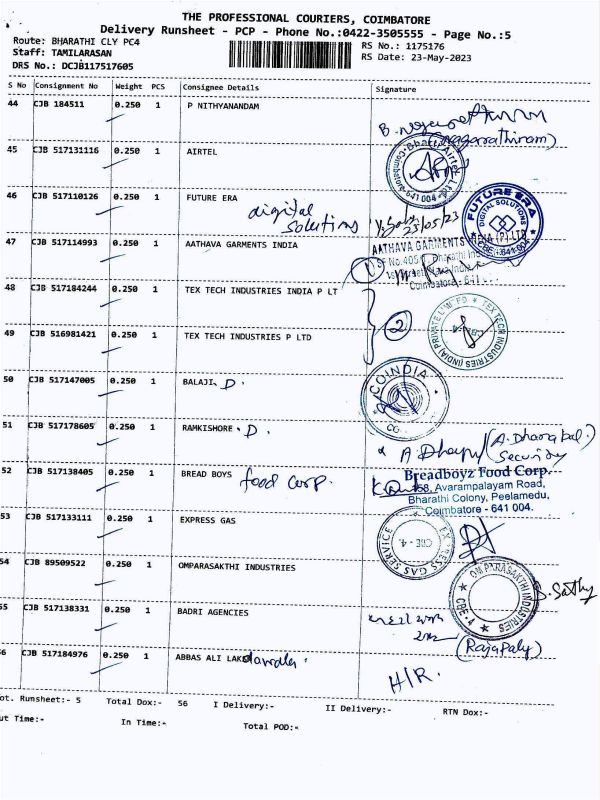 THE PROFESSIONAL COURIERS, COIMBATORE
Delivery Runsheet - PCP - Phone No.:0422-3505555 - Page No.:5
Route: BHARATHI CLY PC4
RS No.: 1175176
Staff: TAMILARASAN
RS Date: 23-May-2023
DRS No.: DCJB117517605
S No Consignment No Weight PCS Consignee Details Signature
44 CJB 184511 0.250 1 P NITHYANANDAM
(nagarathinam)
45 CJB 517131116 0.250 1 AIRTEL
46 CJB 517110126 0.250 1 FUTURE ERA
digital solutions
23/05/23
FUTURE ERA
DIGITAL SOLUTIONS
47 CJB 517114993 0.250 1 AATHAVA GARMENTS INDIA
AATHAVA GARMENTS
48 CJB 517184244 0.250 1 TEX TECH INDUSTRIES INDIA P LT
49 CJB 516981421 0.250 1 TEX TECH INDUSTRIES P LTD
2
TEX TECH INDUSTRIES (INDIA) PRIVATE LIMITED
50 CJB 517147005 0.250 1 BALAJI D.
51 CJB 517178605 0.250 1 RAMKISHORE D.
Security
52 CJB 517138405 0.250 1 BREAD BOYS food Corp.
Breadboyz Food Corp.
158, Avarampalayam Road,
Bharathi Colony, Peelamedu,
Coimbatore - 641 004.
53 CJB 517133111 0.250 1 EXPRESS GAS
EXPRESS GAS SERVICE
CBE - 4
54 CJB 89509522 0.250 1 OMPARASAKTHI INDUSTRIES
OM PARASAKTHI INDUSTRIES
CBE - 4
B. Sathy
55 CJB 517138331 0.250 1 BADRI AGENCIES
(Rajapaly)
56 CJB 517184976 0.250 1 ABBAS ALI LAK
H/R.
ot. Runsheet:- 5 Total Dox:- 56 I Delivery:- II Delivery:- RTN Dox:-
ut Time:- In Time:- Total POD:-